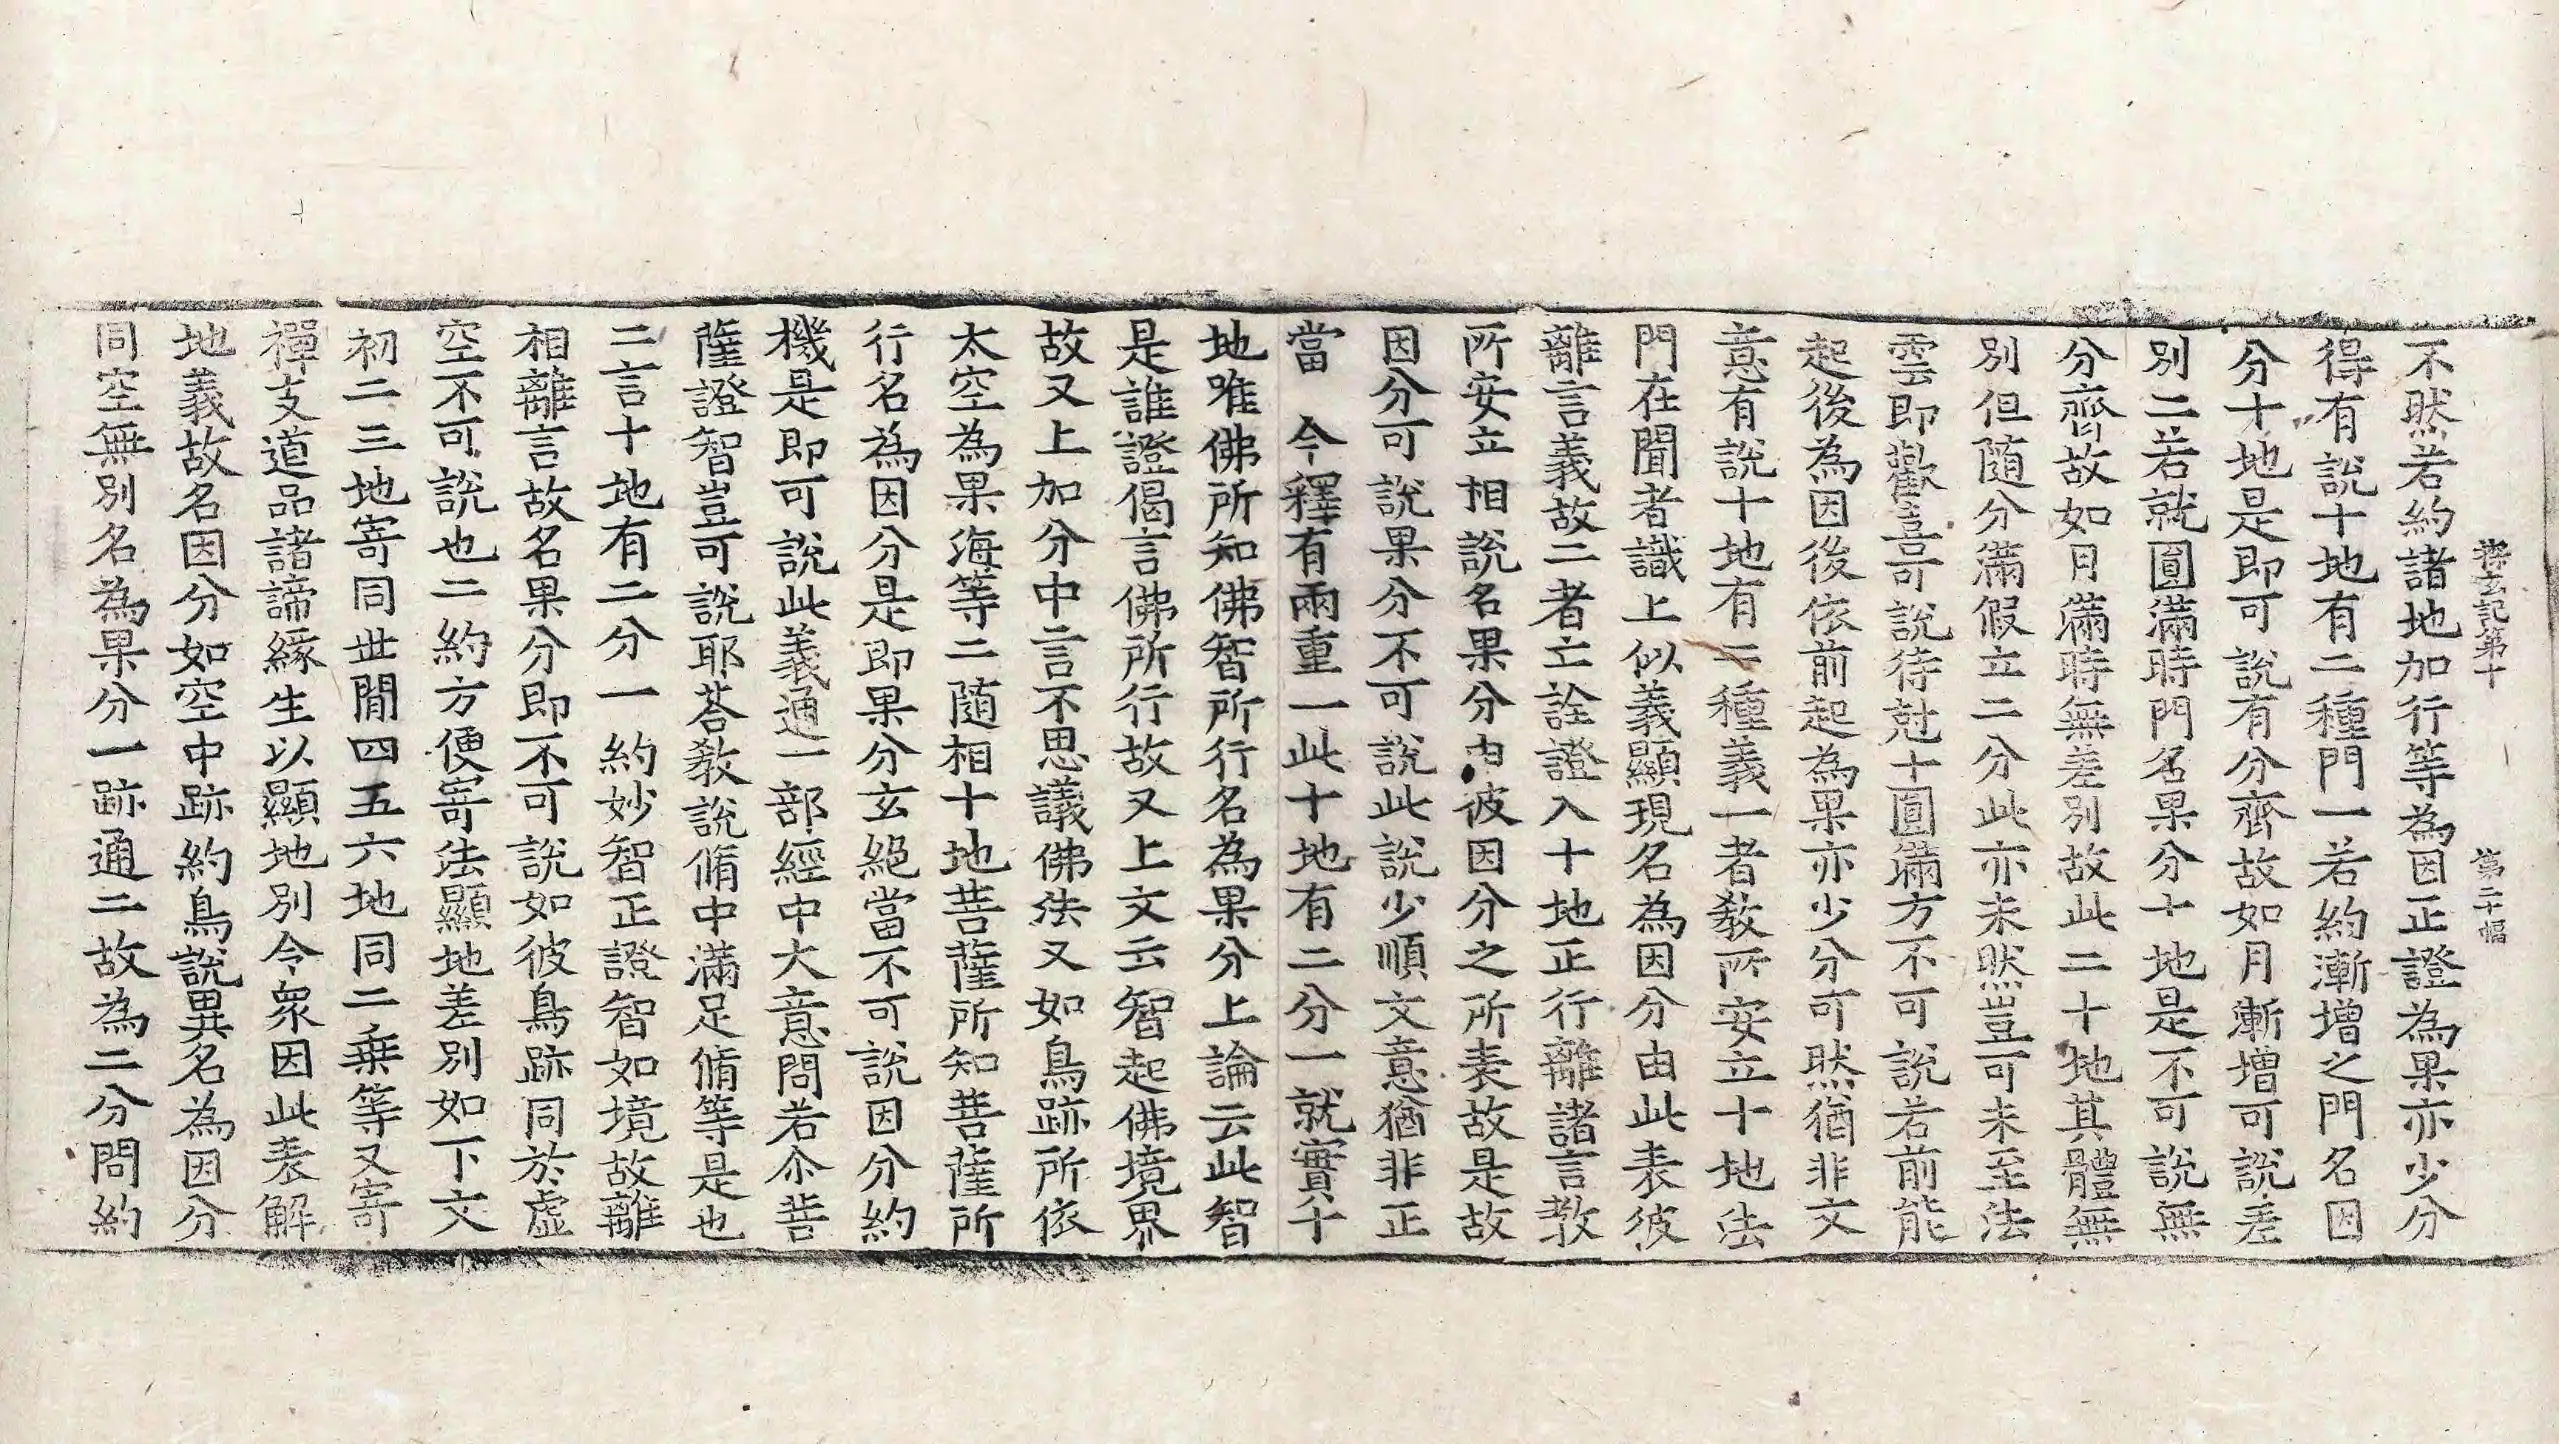 探玄記第十 第二十幅
不然若約諸地加行等為因正證為果亦少分
得有說十地有二種門一若約漸增之門名因
分十地是即可說有分齊故如月漸增可說差
別二若就圓滿時門名果分十地是不可說無
分齊故如月滿時無差別故此二十地其體無
別但随分滿假立二分此亦未然豈可未至法
雲即歡喜可說待𠑽十圓滿方不可說若前能
起後為因後依前起為果亦少分可然猶非文
意有說十地有二種義一者教所安立十地法
門在聞者識上似義顯現名為因分由此表彼
離言義故二者亡詮證入十地正行離諸言教
所安立相說名果分由彼因分之所表故是故
因分可說果分不可說此說少順文意猶非正
當 今釋有兩重一此十地有二分一就實十
地唯佛所知佛智所行名為果分上論云此智
是誰證偈言佛所行故又上文云智起佛境界
故又上加分中言不思議佛法又如鳥跡所依
太空為果海等二随相十地菩薩所知菩薩所
行名為因分是即果分玄絕當不可說因分約
機是即可說此義通一部經中大意問若尒菩
薩證智豈可說耶荅教說脩中滿足脩等是也
二言十地有二分一約妙智正證智如境故離
相離言故名果分即不可說如彼鳥跡同於虛
空不可說也二約方便寄法顯地差別如下文
初二三地寄同世間四五六地同二乗等又寄
禪支道品諸諦緣生以顯地別今衆因此表解
地義故名因分如空中跡約鳥說異名為因分
同空無別名為果分一跡通二故為二分問約